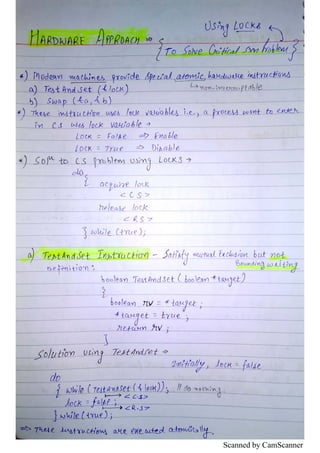 Using LOCKS
HARDWARE APPROACH =>
{To Solve Critical Sxn Problem}
*) Modern machines provide special atomic hardware instructions
↳ non-interruptable
a) Test And Set (& lock)
b) Swap (&a, &b)
*) These instruction uses lock variables i.e., a process want to enter
in CS uses lock variable →
Lock = False => Enable
Lock = True => Disable
*) Solⁿ to CS problem using Locks →
do
{ acquire lock
<CS>
release lock
<RS>
} while (true);
a) TestAndSet Instruction - Satisfy mutual Exclusion but not
Bounding waiting
Definition:
boolean TestAndSet (boolean *target)
{
boolean rv = *target;
*target = true;
return rv;
}
Solution using TestAndSet =>
Initially, lock = false
do
{ while (TestAndSet (& lock)); // do nothing
→ <CS>
lock = false;
→ <R.S>
} while (true);
=> These instructions are executed atomically
Scanned by CamScanner